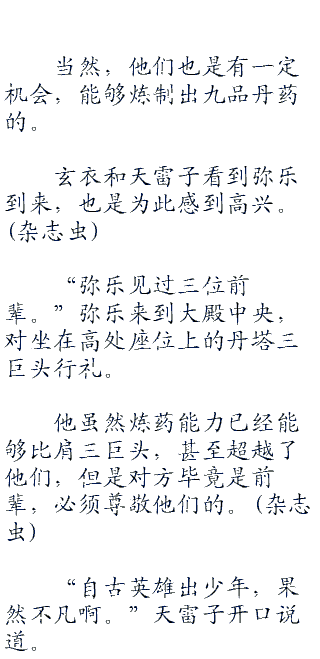 当然，他们也是有一定
机会，能够炼制出九品丹药
的。
玄衣和天雷子看到弥乐
到来，也是为此感到高兴。
(杂志虫)
“弥乐见过三位前
辈。”弥乐来到大殿中央，
对坐在高处座位上的丹塔三
巨头行礼。
他虽然炼药能力已经能
够比肩三巨头，甚至超越了
他们，但是对方毕竟是前
辈，必须尊敬他们的。(杂志
虫)
“自古英雄出少年，果
然不凡啊。”天雷子开口说
道。